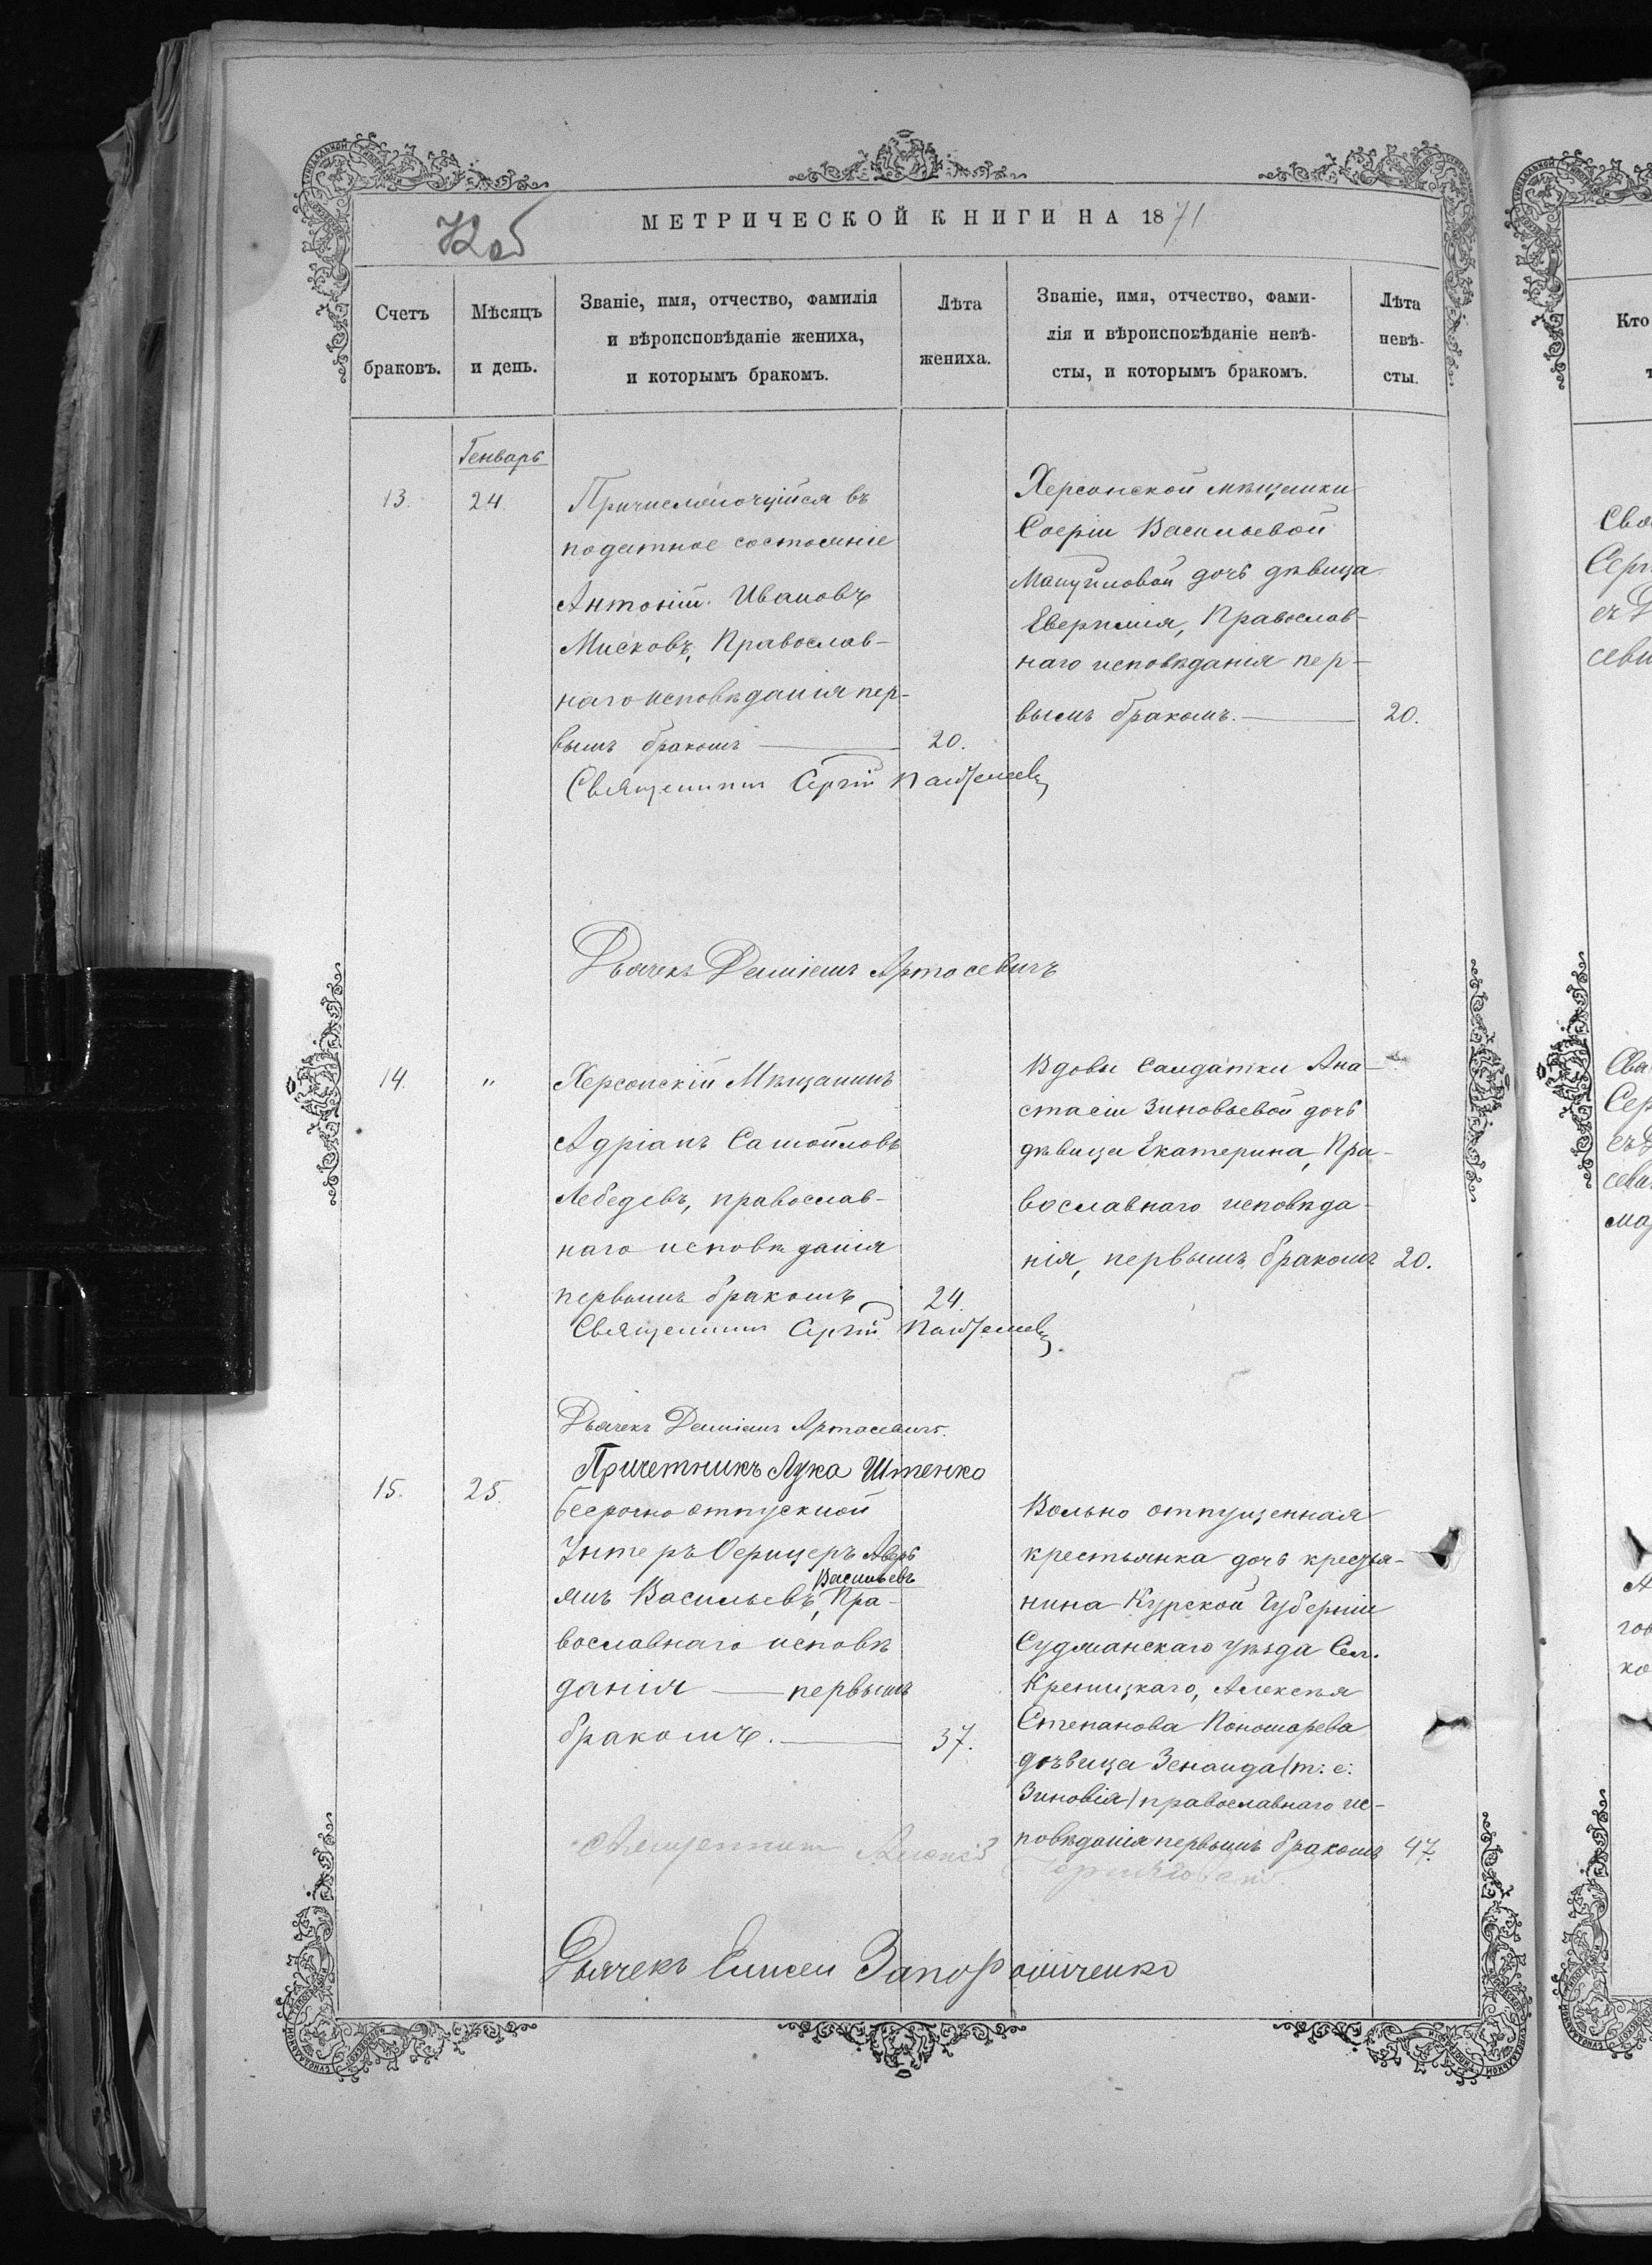 МЕТРИЧЕСКОЙ КНИГИ НА 1871
72об
Счетъ браковъ.
Мѣсяцъ и день.
Званіе, имя, отчество, фамилія
и вѣроисповѣданіе жениха,
и которымъ бракомъ.
Лѣта жениха.
Званіе, имя, отчество, фами-
лія и вѣроисповѣданіе невѣ-
сты, и которымъ бракомъ.
Лѣта невѣ-
сты.
Генварь
13.
24.
Причисляющійся въ
податное состояніе
Антоній Ивановъ
Мисковъ, Православ-
наго исповѣданія пер-
вымъ бракомъ
20.
Херсонской мѣщанки
Софіи Васильевой
Мануиловой дочь дѣвица
Евфимія, Православ-
наго исповѣданія пер-
вымъ бракомъ.
20.
Священникъ Сергій
Дьячекъ Даміанъ Артасевичъ
14.
"
Херсонскій Мѣщанинъ
Адріанъ Самойловъ
Лебедевъ, православ-
наго исповѣданія
первымъ бракомъ
24.
Вдовы салдатки Ана-
стасіи Зиновьевой дочь
дѣвица Екатерина, Пра-
вославнаго исповѣда-
нія, первымъ бракомъ
20.
Священникъ Сергій
Дьячекъ Даміанъ Артасевичъ.
Причетникъ Лука Штенко
15.
25.
бесрочно отпускной
Унтеръ Офицеръ Аверь
янъ Васильевъ Васильевъ, Пра-
вославнаго исповѣ
данія — первымъ
бракомъ.
37.
Вольно отпущенная
крестьянка дочь крестья-
нина Курской Губерніи
Суджанскаго уѣзда Сел.
Креницкаго, Алексѣя
Степанова Пономарева
дѣвица Зенаида (т: е:
Зиновія) православнаго ис-
повѣданія первымъ бракомъ
47.
Священникъ Алексѣй
Дьячекъ Елисей
Кто